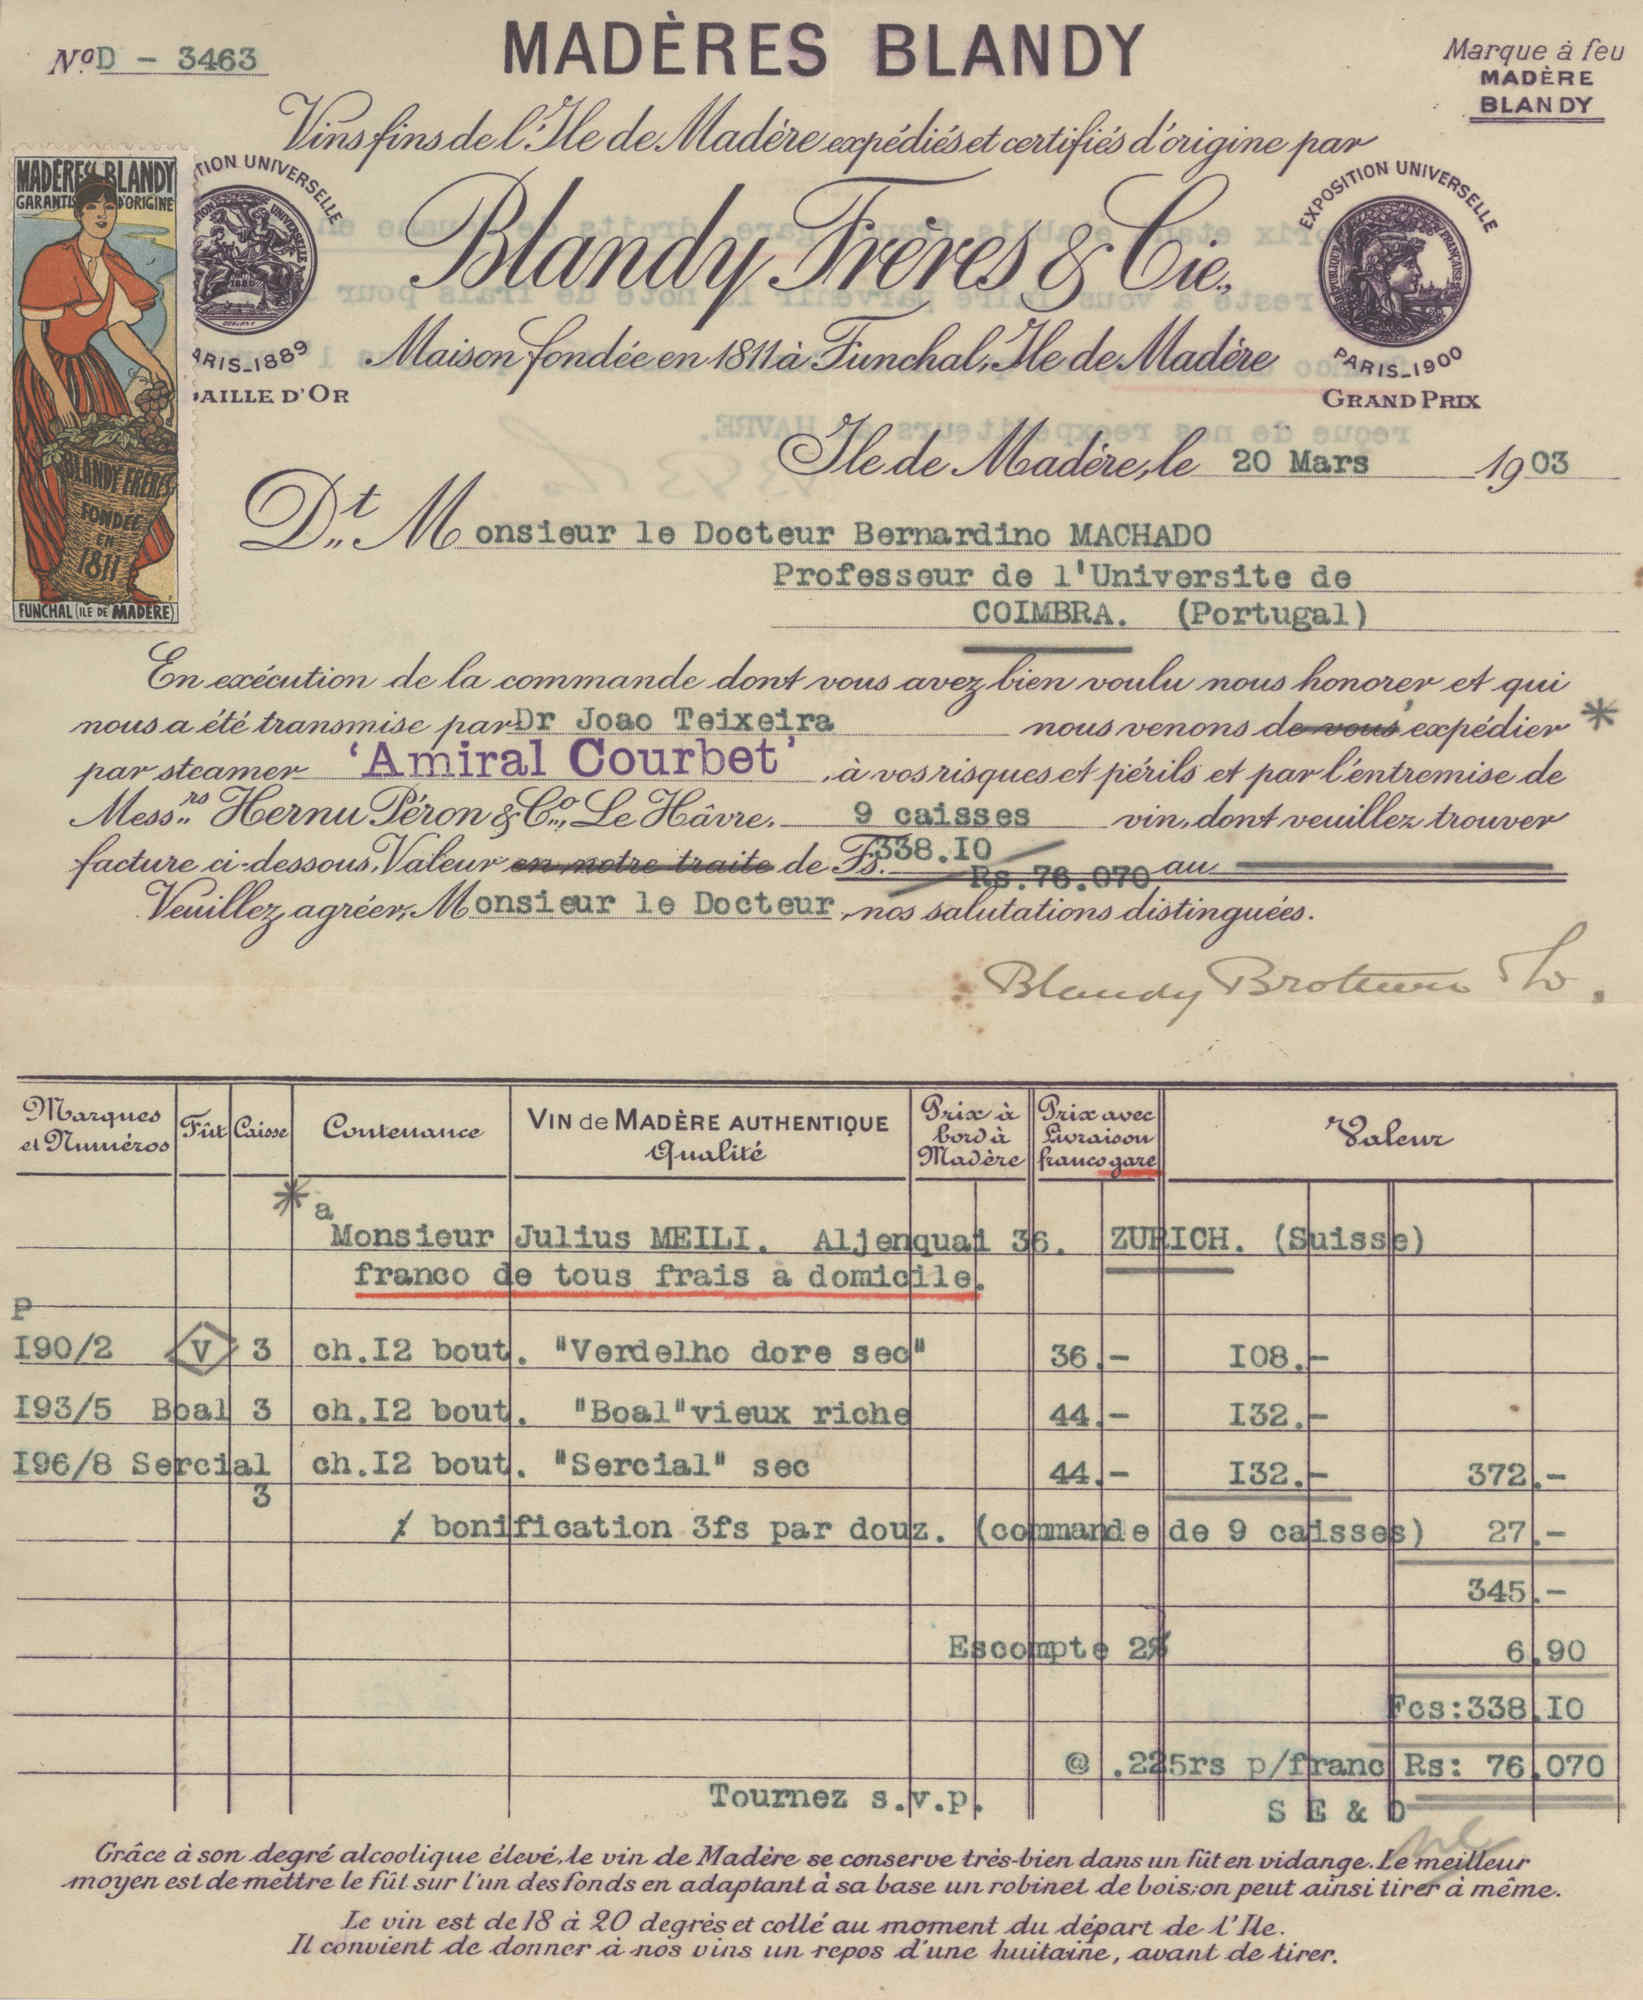 NºD - 3463
MADÈRES BLANDY
Marque à feu
MADÈRE
BLANDY
Vins fins de l'Ile de Madère expédiés et certifiés d'origine par
Blandy Frères & Cie.,
Maison fondée en 1811 à Funchal, Ile de Madère
MADÈRES BLANDY
GARANTIS D'ORIGINE
BLANDY FRÈRES
FONDÉE
EN
1811
FUNCHAL (ILE DE MADÈRE)
TION UNIVERSELLE
ARIS_1889
AILLE D'OR
EXPOSITION UNIVERSELLE
REPUBLIQUE FRANÇAISE
PARIS_1900
GRAND PRIX
Ile de Madère, le 20 Mars 1903
Dt. Monsieur le Docteur Bernardino MACHADO
Professeur de l'Universite de
COIMBRA. (Portugal)
En exécution de la commande dont vous avez bien voulu nous honorer et qui
nous a été transmise par Dr Joao Teixeira nous venons de vous expédier *
par steamer 'Amiral Courbet', à vos risques et périls et par l'entremise de
Messrs. Hernu Péron & Co., Le Hâvre, 9 caisses vin, dont veuillez trouver
facture ci-dessous, Valeur en notre traite de Fs. 338.I0 Rs.76.070 au
Veuillez agréer, Monsieur le Docteur, nos salutations distinguées.
Blandy Brothers & Co.
Marques et Numéros Fût Caisse Contenance VIN de MADÈRE AUTHENTIQUE Qualité Prix à bord à Madère Prix avec Livraison franco gare Valeur
* a
Monsieur Julius MEILI. Aljenquai 36. ZURICH. (Suisse)
franco de tous frais à domicile.
P
I90/2 V 3 ch.I2 bout. "Verdelho dore sec" 36.- I08.-
I93/5 Boal 3 ch.I2 bout. "Boal"vieux riche 44.- I32.-
I96/8 Sercial 3 ch.I2 bout. "Sercial" sec 44.- I32.- 372.-
/ bonification 3fs par douz. (commande de 9 caisses) 27.-
345.-
Escompte 2% 6.90
Fcs:338.I0
@ .225rs p/franc Rs: 76.070
Tournez s.v.p. S E & O
Grâce à son degré alcoolique élevé, le vin de Madère se conserve très-bien dans un fût en vidange. Le meilleur
moyen est de mettre le fût sur l'un des fonds en adaptant à sa base un robinet de bois; on peut ainsi tirer à même.
Le vin est de 18 à 20 degrés et collé au moment du départ de l'Ile.
Il convient de donner à nos vins un repos d'une huitaine, avant de tirer.